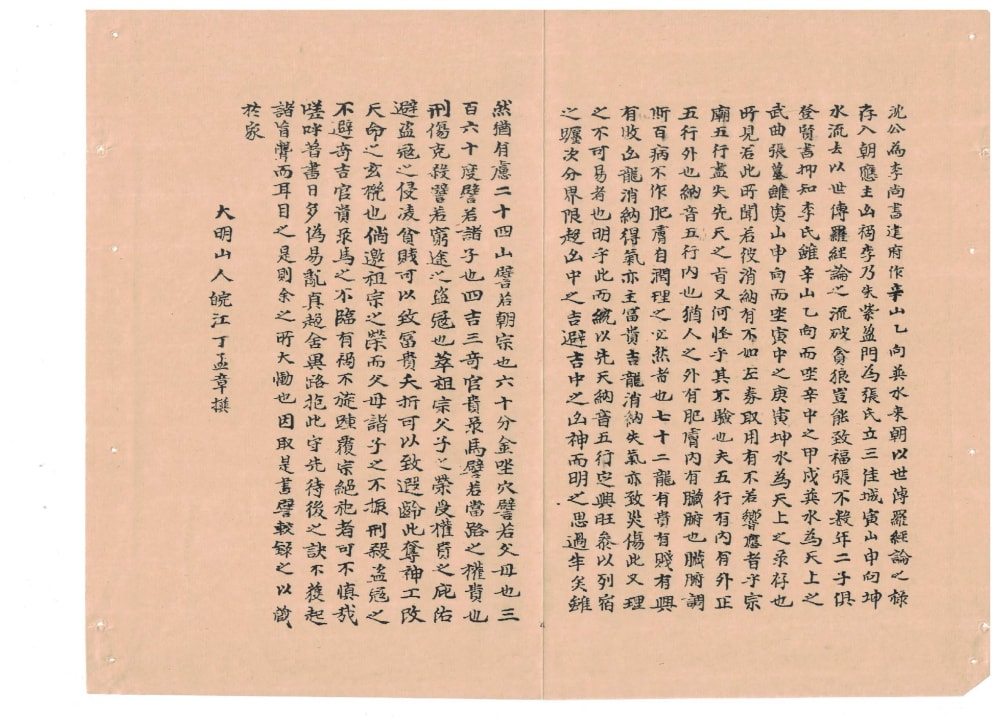 沈公為李尚書遷府作辛山乙向巽水来朝以世傳羅經論之祿
存入朝應主凶禍李乃朱紫盈門為張氏立三佳城寅山申向坤
水流去以世傳羅經論之流破貪狼豈能致福張不数年二子俱
登賢書抑知李氏雖辛山乙向而坐辛中之甲戌巽水為天上之
武曲張墓雖寅山申向而坐寅中之庚寅坤水為天上之录存也
所見若此所聞若彼消納有不如左券取用有不若響應者乎宗
廟五行盡失先天之旨又何怪乎其不驗也夫五行有内有外正
五行外也納音五行内也猶人之外有肥膚内有臟腑也臟腑調
斯百病不作肥膚自潤理之必然者也七十二龍有貴有賤有興
有敗凶龍消納得氣亦主富貴吉龍消納失氣亦致災傷此又理
之不可易者也明乎此而統以先天納音五行定興旺叅以列宿
之躔次分界限趨凶中之吉避吉中之凶神而明之思過半矣雖
然猶有慮二十四山譬若朝宗也六十分金坐穴譬若父母也三
百六十度譬若諸子也四吉三奇官貴录馬譬若當路之權貴也
刑傷克殺譬若窮途之盜冦也萃祖宗父子之榮受權貴之庇佑
避盜冦之侵凌貧賤可以致富貴夭折可以致遐齡此奪神工改
天命之玄機也倘邀祖宗之榮而父母諸子之不振刑殺盜冦之
不避奇吉官貴录馬之不臨有禍不旋踵覆宗絕祀者可不慎哉
嗟呼昔書日多偽易亂真趨舍異路抱此守先待後之訣不獲起
諸盲聾而耳目之是則余之所大慟也因取是書譬較録之以藏
於家
大明山人皖江丁孟章撰